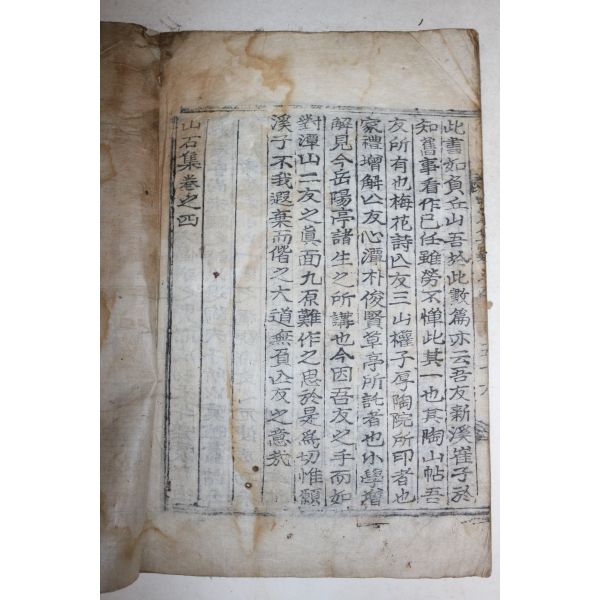 此書如負丘山吾於此數篇亦云吾友新溪崔子於
知舊事看作己任雖勞不憚此其一也其陶山帖吾
友所有也梅花詩亡友三山權子厚陶院所印者也
家禮增解亡友心潭朴俊賢草亭所託者也小學增
解見今岳陽亭諸生之所講也今因吾友之手而如
對潭山二友之眞面九原難作之思於是爲切惟願
溪子不我遐棄而偕之大道無負亡友之意哉
山石集卷之四